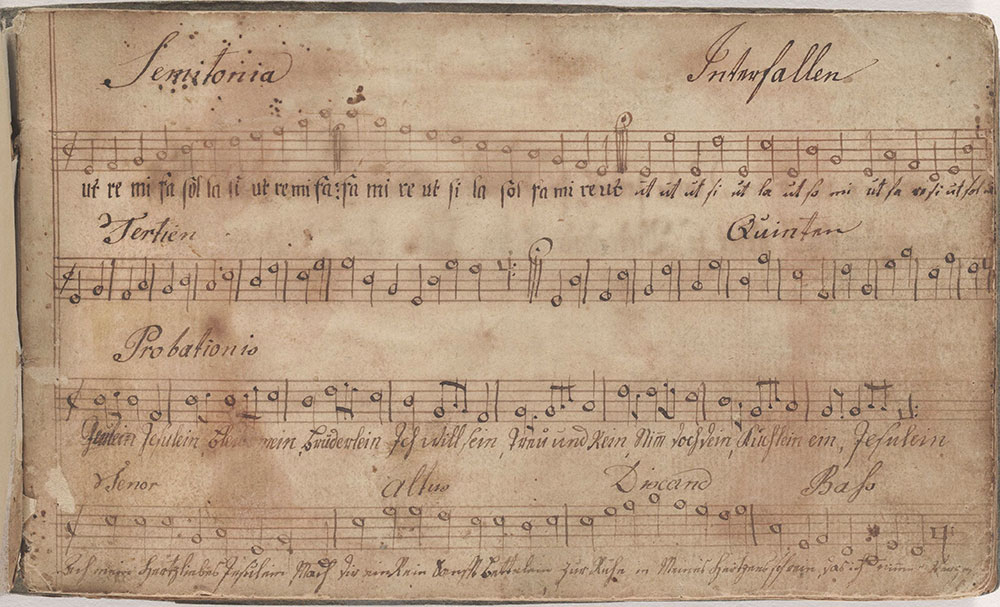 Semitonia Interfallen
ut re mi fa sol la si ut re mi fa: fa mi re ut si la sol fa mi re ut ut ut ut si ut la ut so mi ut fa re si ut sol
Tertien Quinten
Probationis
Jesulein Jesulein, mein Brüderlein Ich will sein, Treu und Rein, Nim doch dein, ein, Jesulein
Tenor Altus Discand Baso
Ach mein Hertzliebes Jesulein Mach dir ein Rein Sanfft Bettelein Zur Ruhe in Meines Hertzens schrein, das ich